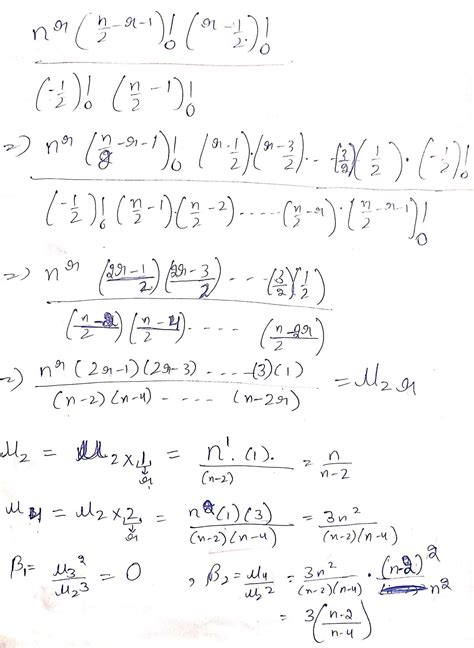 n^r (n/2 - r - 1)!₀ (r - 1/2)!₀
(-1/2)!₀ (n/2 - 1)!₀
=> n^r (n/2 - r - 1)!₀ (r - 1/2)·(r - 3/2)... - (3/2)(1/2)·(-1/2)!₀
(-1/2)!₀ (n/2 - 1)·(n/2 - 2)·....·(n/2 - r)·(n/2 - r - 1)!₀
=> n^r (2r-1/2)(2r-3/2) - - - (3/2)(1/2)
(n-2/2)(n-4/2)· - - - · (n-2r/2)
=> n^r (2r-1)(2r-3) - - - - (3)(1) = μ₂r
(n-2)(n-4) - - - - (n-2r)
μ₂ = μ₂ₓ₁ = n¹·(1)·/(n-2) = n/n-2
↓ r
μ₄ = μ₂ₓ₂ = n²(1)(3)/(n-2)(n-4) = 3n²/(n-2)(n-4)
↓ r
β₁ = μ₃²/μ₂³ = 0 , β₂ = μ₄/μ₂² = 3n²/(n-2)(n-4) · (n-2)²/n²
= 3(n-2/n-4)